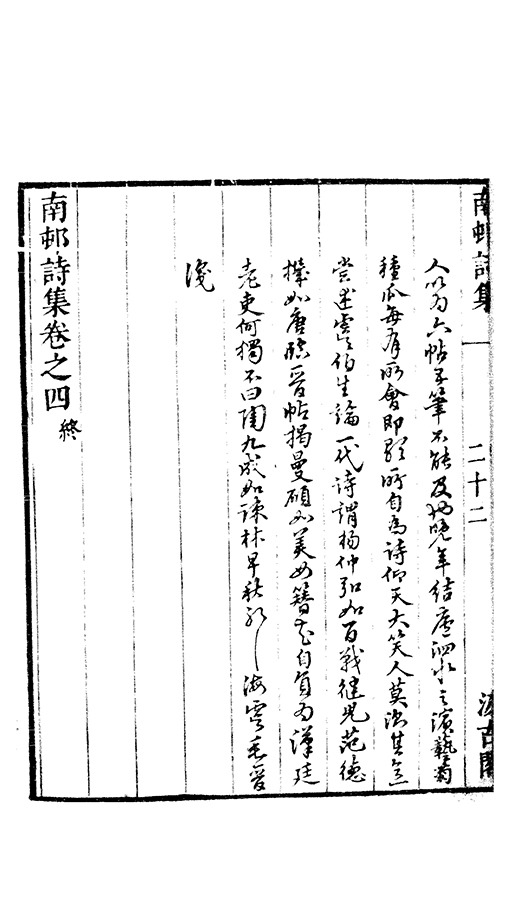 南邨詩集 二十二 汲古閣
人以為六帖子筆不能及也晚年結廬泗水之濱藝菊
種瓜每有所會即歌所自為詩仰天大笑人莫測其意
嘗述虞伯生論一代詩謂楊仲弘如百戰健兒范德
機如唐臨晉帖揭曼碩如美女簪花自負為漢廷
老吏何獨不曰陶九成如疎林早秋耶海虞毛晉
識
南邨詩集卷之四終